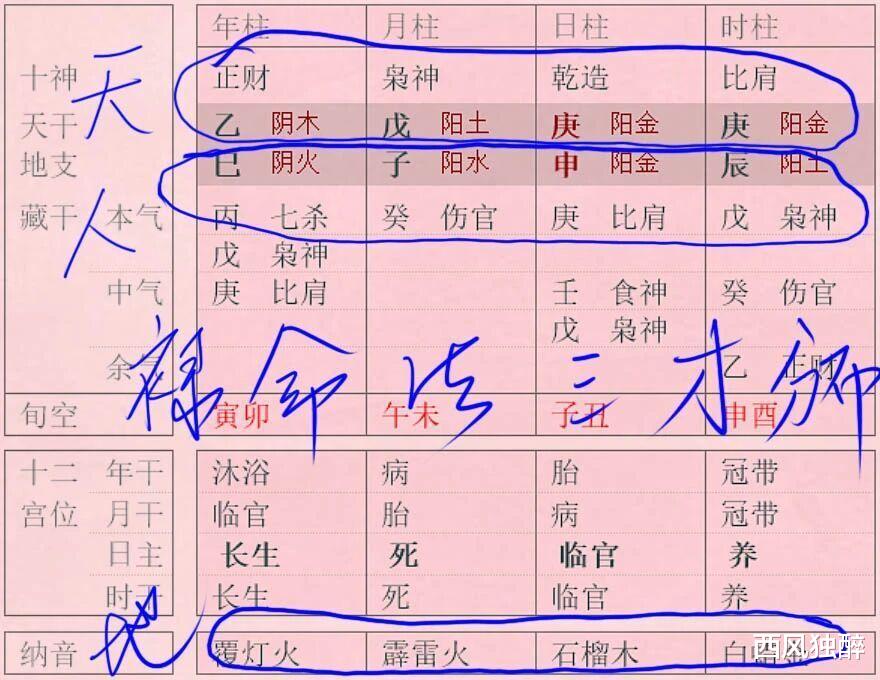 年柱 月柱 日柱 时柱
十神 正财 枭神 乾造 比肩
天
天干 乙 阴木 戊 阳土 庚 阳金 庚 阳金
地支 巳 阴火 子 阳水 申 阳金 辰 阳土
藏干 本气 丙 七杀 癸 伤官 庚 比肩 戊 枭神
人
戊 枭神
中气 庚 比肩 壬 食神 癸 伤官
戊 枭神
余气 乙 正财
禄命法三才
旬空 寅卯 午未 子丑 申酉
十二 年干 沐浴 病 胎 冠带
宫位 月干 临官 胎 病 冠带
日主 长生 死 临官 养
时干 长生 死 临官 养
地
纳音 覆灯火 霹雷火 石榴木
西风独醉